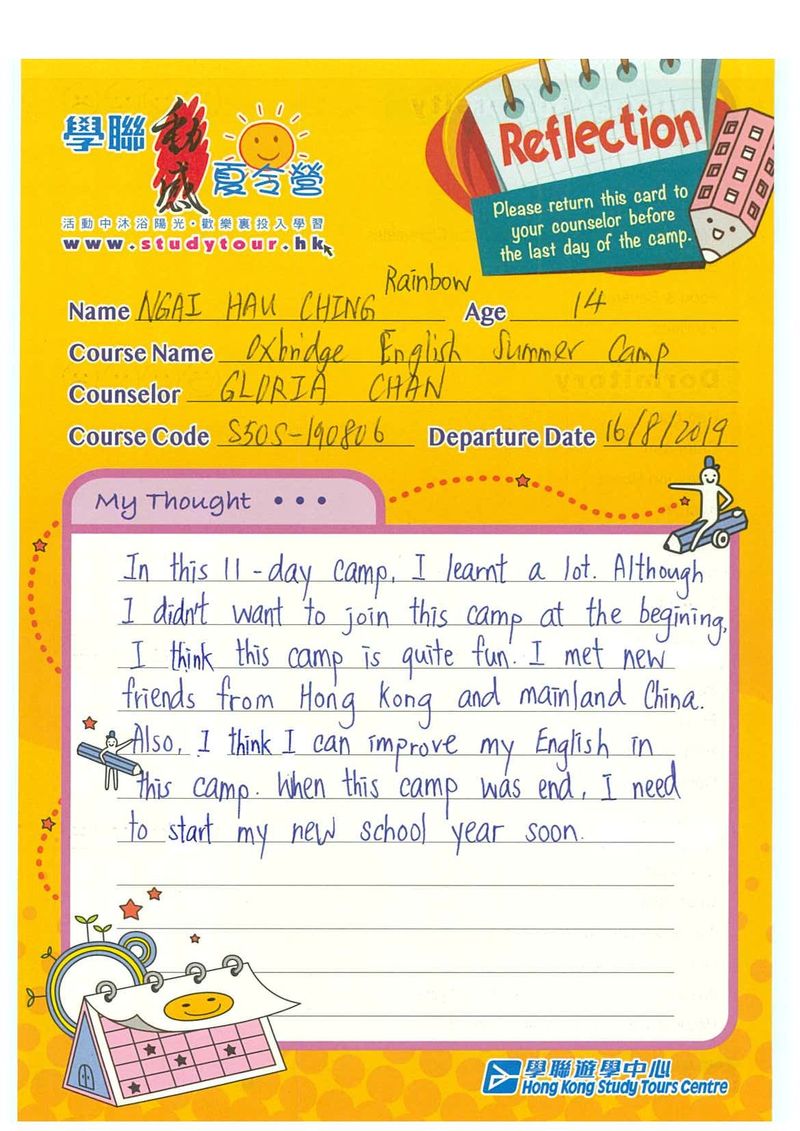 學聯 動感 夏令營
活動中沐浴陽光·歡樂裏投入學習
www.studytour.hk
Reflection
Please return this card to
your counselor before
the last day of the camp.
Rainbow
Name NGAI HAU CHING Age 14
Course Name Oxbridge English Summer Camp
Counselor GLORIA CHAN
Course Code S50S-190806 Departure Date 16/8/2019
My Thought • • •
In this 11-day camp, I learnt a lot. Although
I didn't want to join this camp at the begining,
I think this camp is quite fun. I met new
friends from Hong Kong and mainland China.
Also, I think I can improve my English in
this camp. When this camp was end, I need
to start my new school year soon.
學聯遊學中心
Hong Kong Study Tours Centre